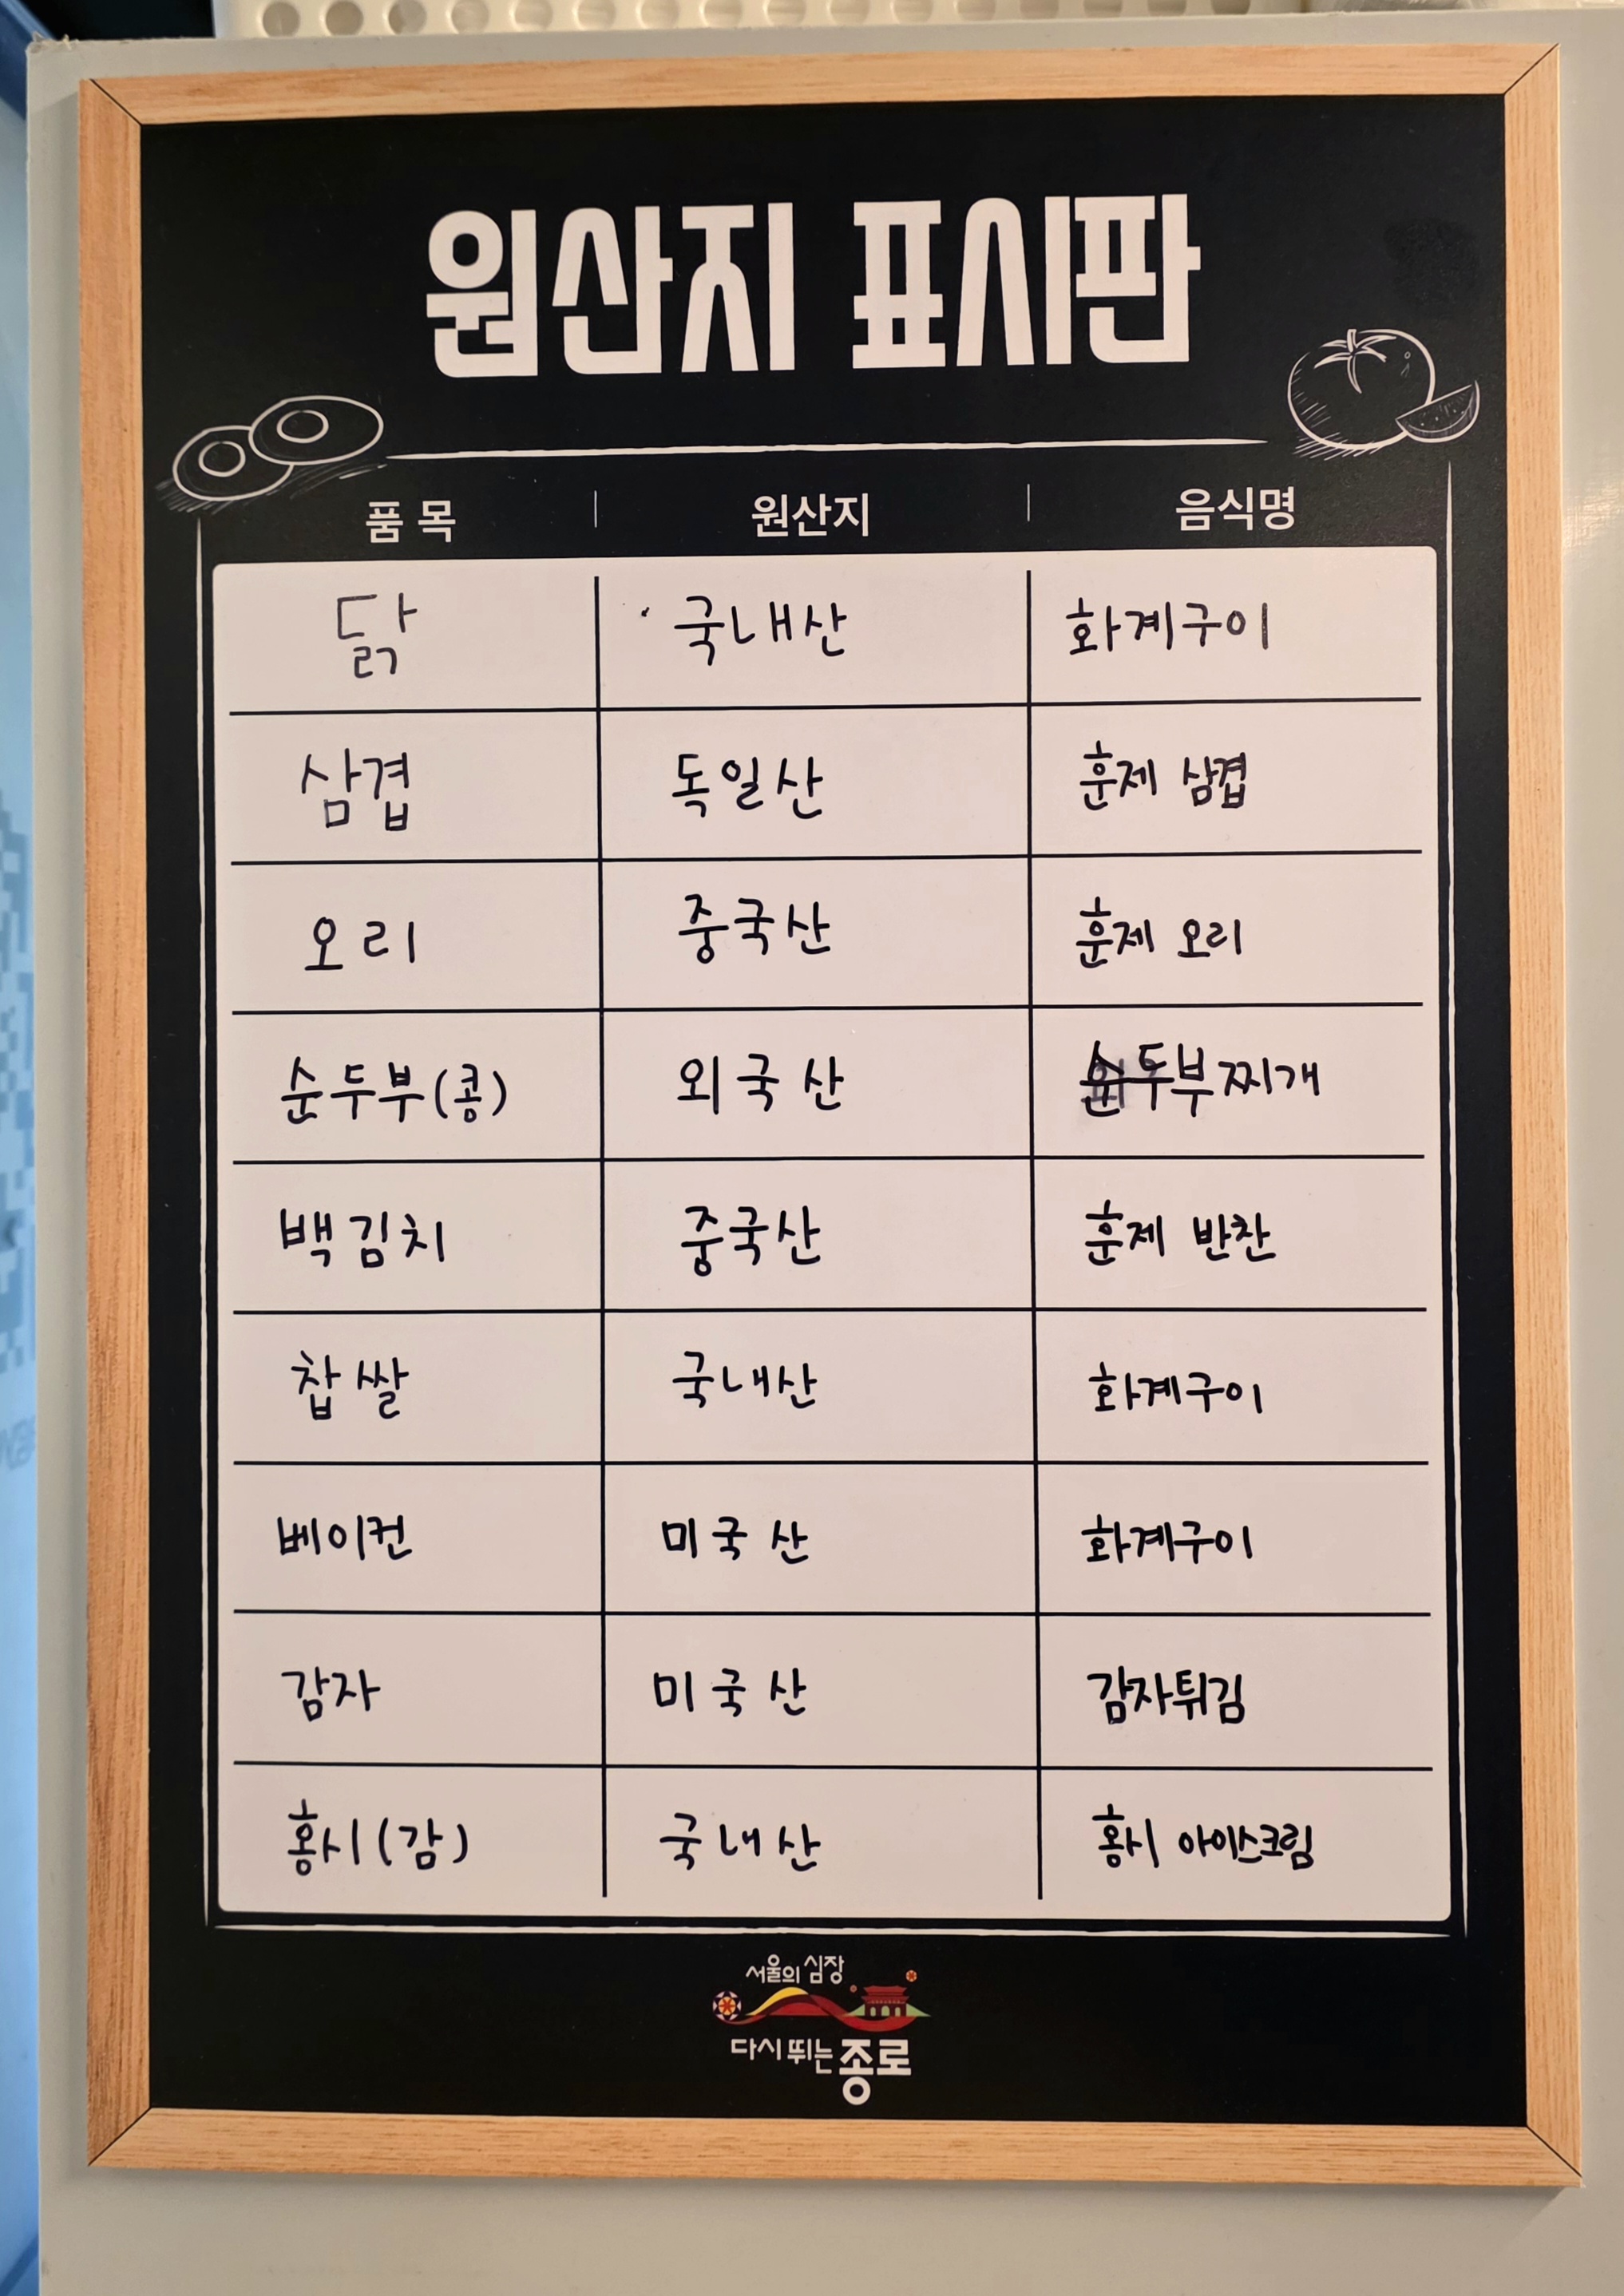 원산지 표시판
품 목 | 원산지 | 음식명
닭 국내산 화계구이
삼겹 독일산 훈제 삼겹
오리 중국산 훈제 오리
순두부(콩) 외국산 순두부찌개
백김치 중국산 훈제 반찬
찹쌀 국내산 화계구이
베이컨 미국산 화계구이
감자 미국산 감자튀김
홍시(감) 국내산 홍시 아이스크림
서울의 심장
다시 뛰는 종로